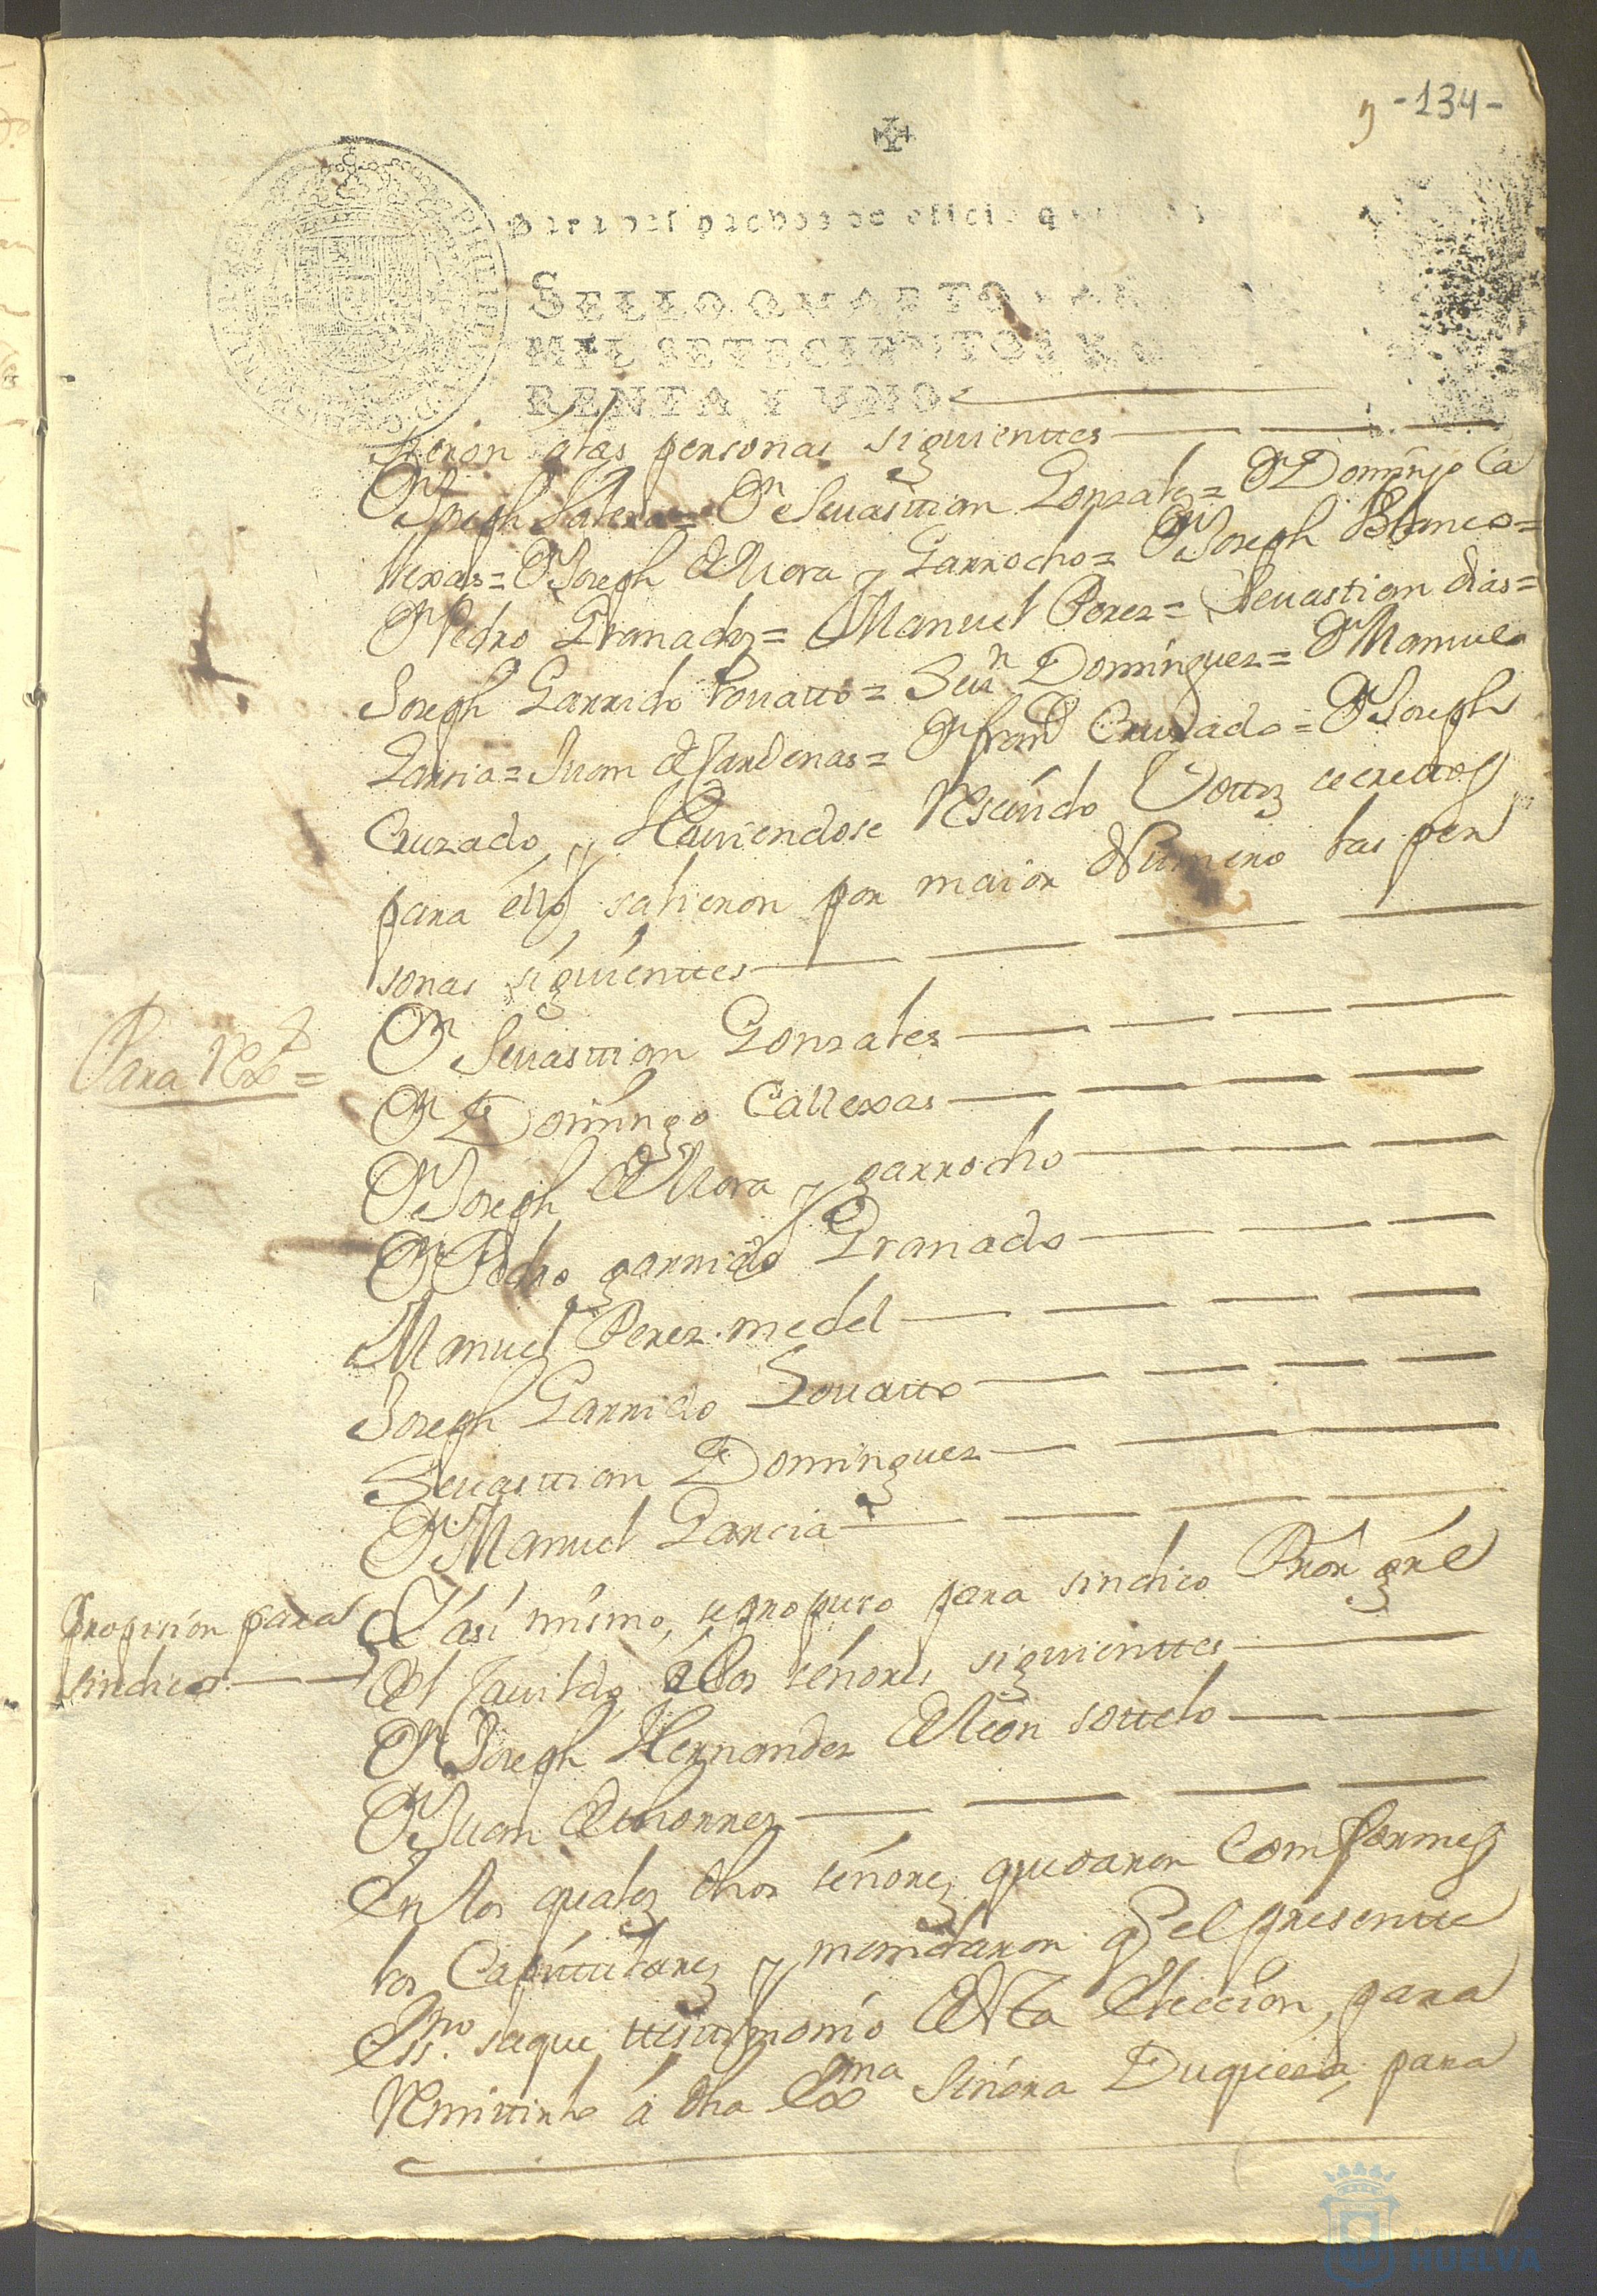 9 -134-
Para despachos de oficio q
SELLO QVARTO, AÑ
MIL SETECIENTOS Y
RENTA Y VNO.
sieron alas personas siguienttes
Dn Joseph = Dn Sevasttian Gonzales = Dn Domingo Ca
llexas = Dn Joseph de Mora y Garrocho = Dn Joseph Blanco =
Dn Pedro Granados = Manuel Perez = Sevastian dias =
Joseph Garrido Lovatto = Sevn Dominguez = Dn Manuel
Garcia = Juan de Cardenas = Dn Franco Cruzado = Dn Joseph
Cruzado, y Haviendose Resevido Vottos secrettos
para ello salieron por maior Numero las per
sonas siguienttes
Para Rexs =
Dn Sevasttian Gonzales
Dn Domingo Callexas
Dn Joseph de Mora y garrocho
Dn Pedro garrido Granado
Manuel Perez medel
Joseph Garrido Lovatto
Sevasttian Dominguez
Dn Manuel Garcia
Propision para
sindico
Y asi mismo, se propuso para sindico Pror gral
del Cavildo a los señores siguienttes
Dn Joseph Hernandez de leon sottelo
Dn Juan de thorres
en los quales dhos señores quedaron comformes
los Capittulares y mandaron q el presentte
Essno saque testtimonio desta eleccion, para
Remittirlo a dha Exma Señora Duquesa, para
HUELVA